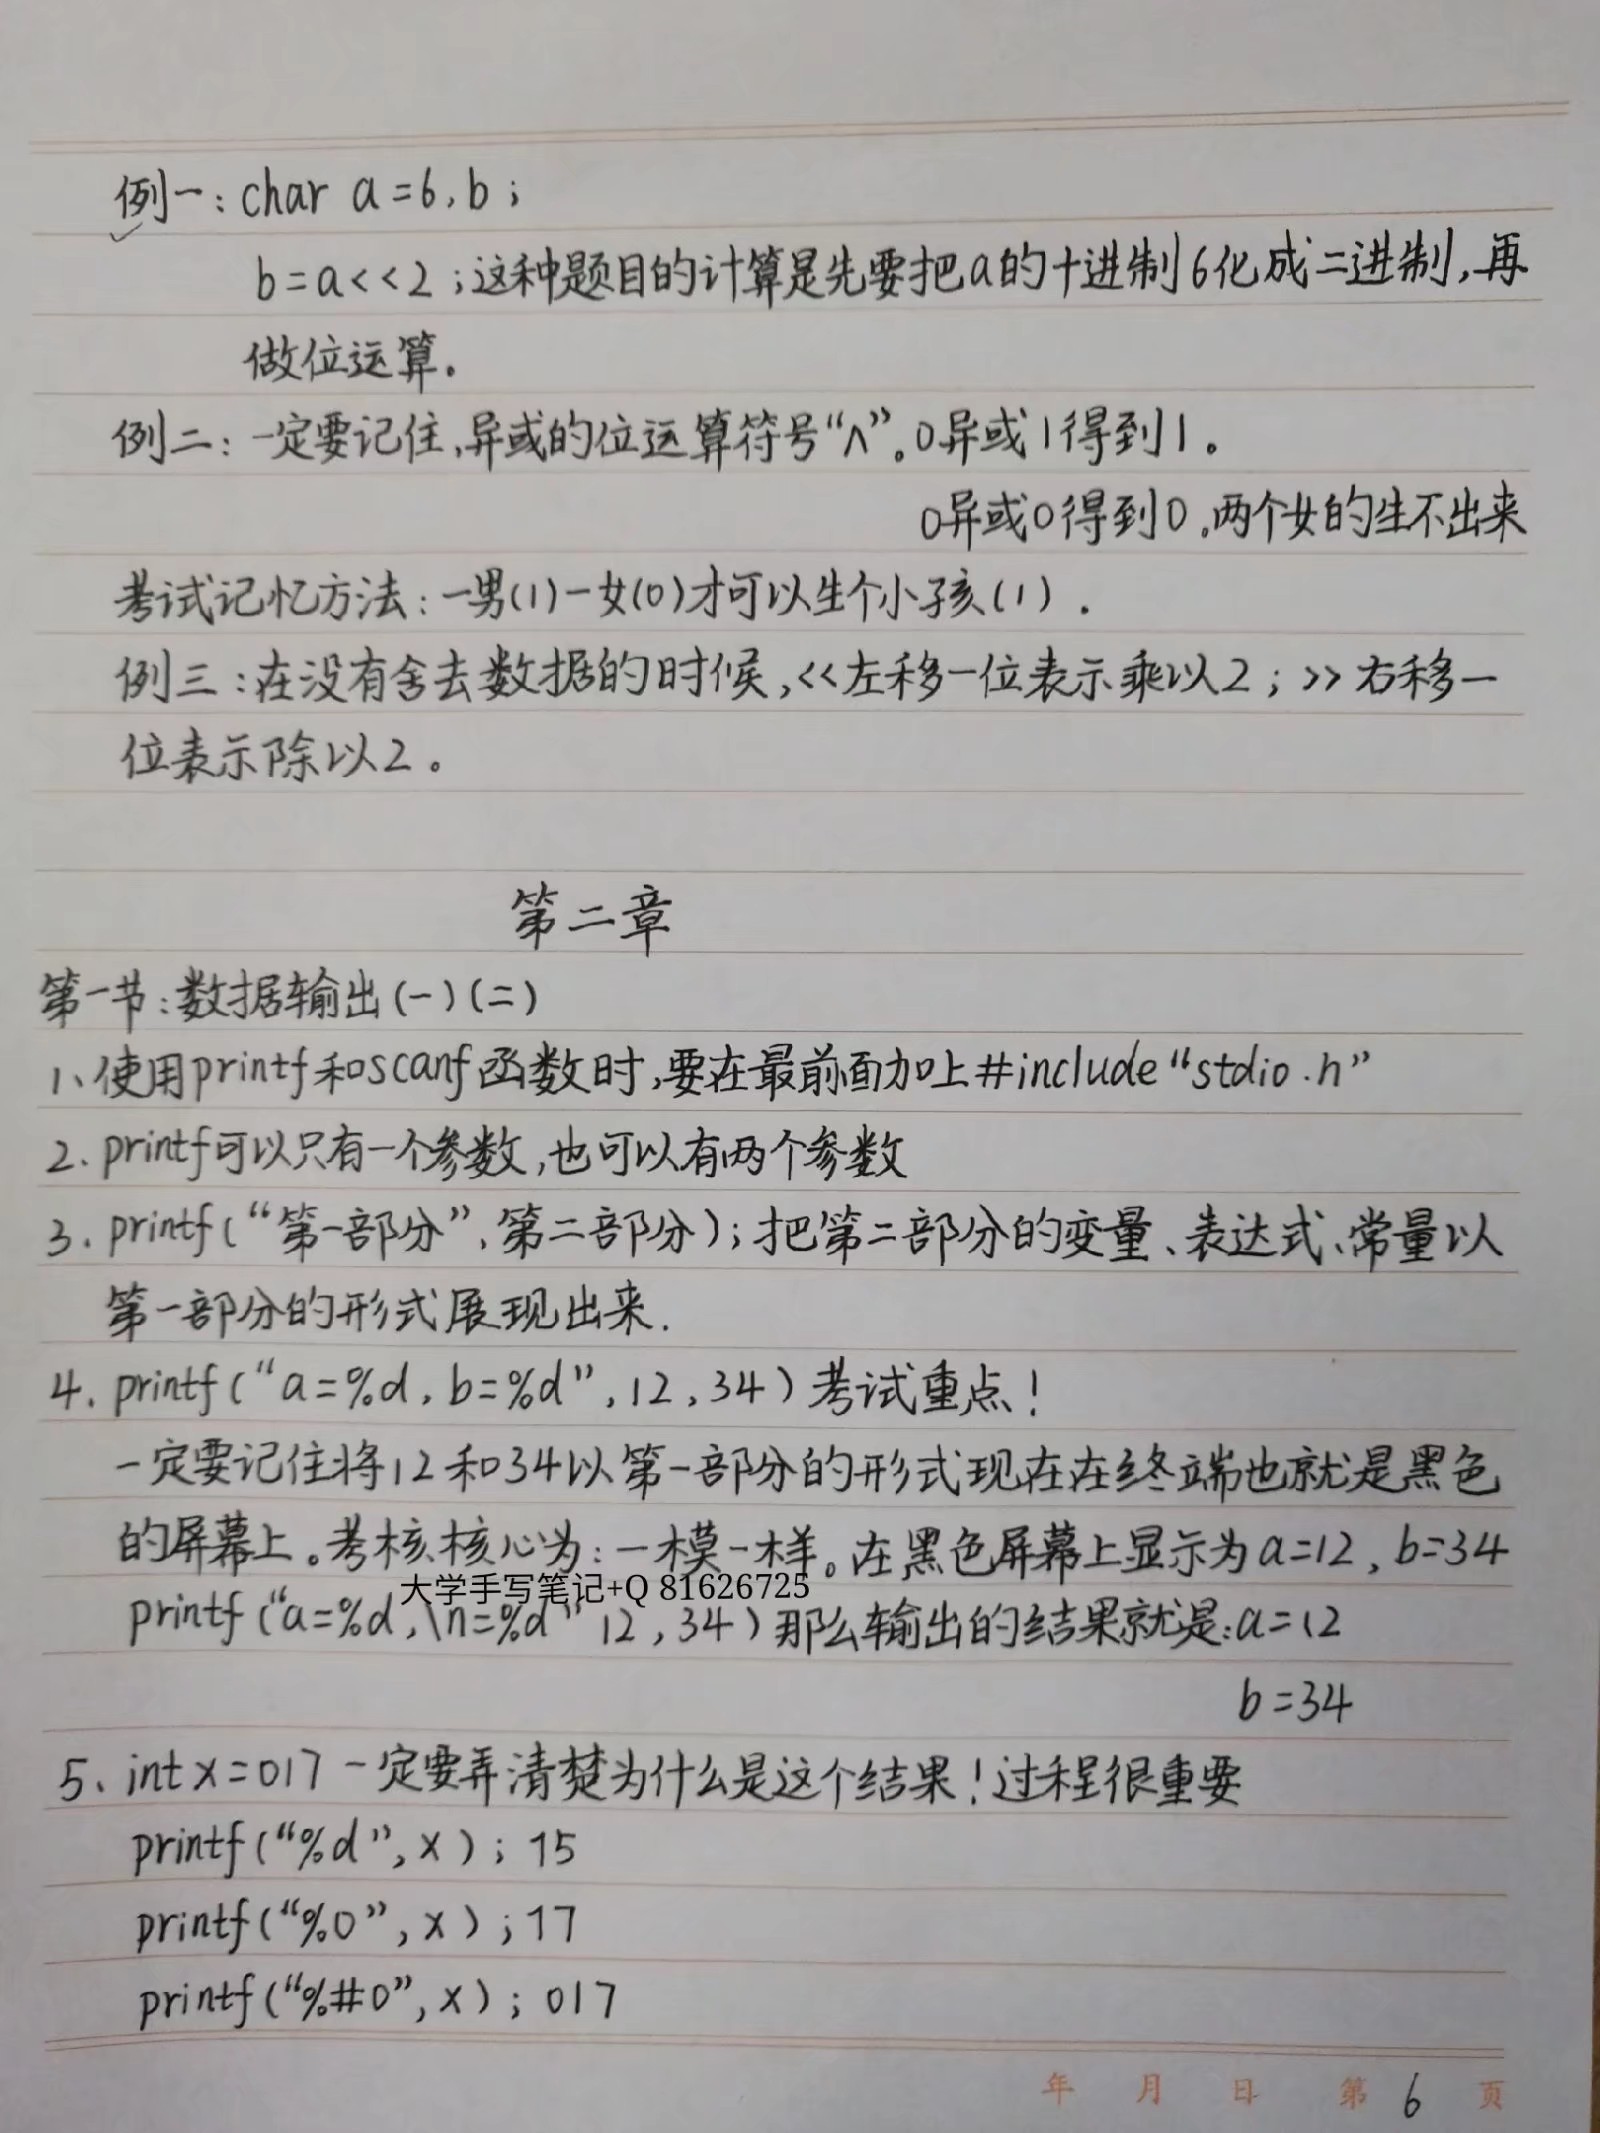 例一：char a=6,b；
b=a<<2；这种题目的计算是先要把a的十进制6化成二进制，再
做位运算。
例二：一定要记住，异或的位运算符号“∧”。0异或1得到1。
0异或0得到0。两个女的生不出来
考试记忆方法：一男(1)一女(0)才可以生个小孩(1)．
例三：在没有舍去数据的时候，<<左移一位表示乘以2；>>右移一
位表示除以2。
第二章
第一节：数据输出(一)(二)
1、使用printf和scanf函数时，要在最前面加上#include“stdio.h”
2．printf可以只有一个参数，也可以有两个参数
3．printf(“第一部分”，第二部分)；把第二部分的变量、表达式、常量以
第一部分的形式展现出来．
4．printf(“a=%d，b=%d”，12，34)考试重点！
一定要记住将12和34以第一部分的形式现在在终端也就是黑色
的屏幕上。考核核心为：一模一样。在黑色屏幕上显示为a=12，b=34
大学手写笔记+Q 81626725
printf(“a=%d，\n=%d” 12，34)那么输出的结果就是：a=12
b=34
5、int x=017 一定要弄清楚为什么是这个结果！过程很重要
printf(“%d”，x)；15
printf(“%0”，x)；17
printf(“%#0”，x)；017
年 月 日 第 6 页